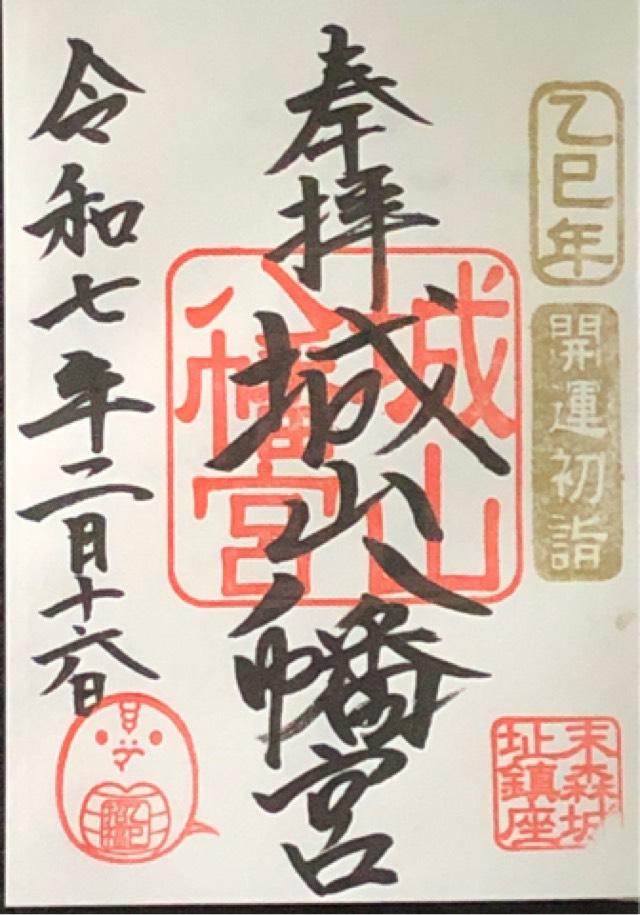 乙巳年
開運初詣
奉拝
城山八幡宮
城山
八幡宮
末森城
址鎮座
令和七年二月十六日